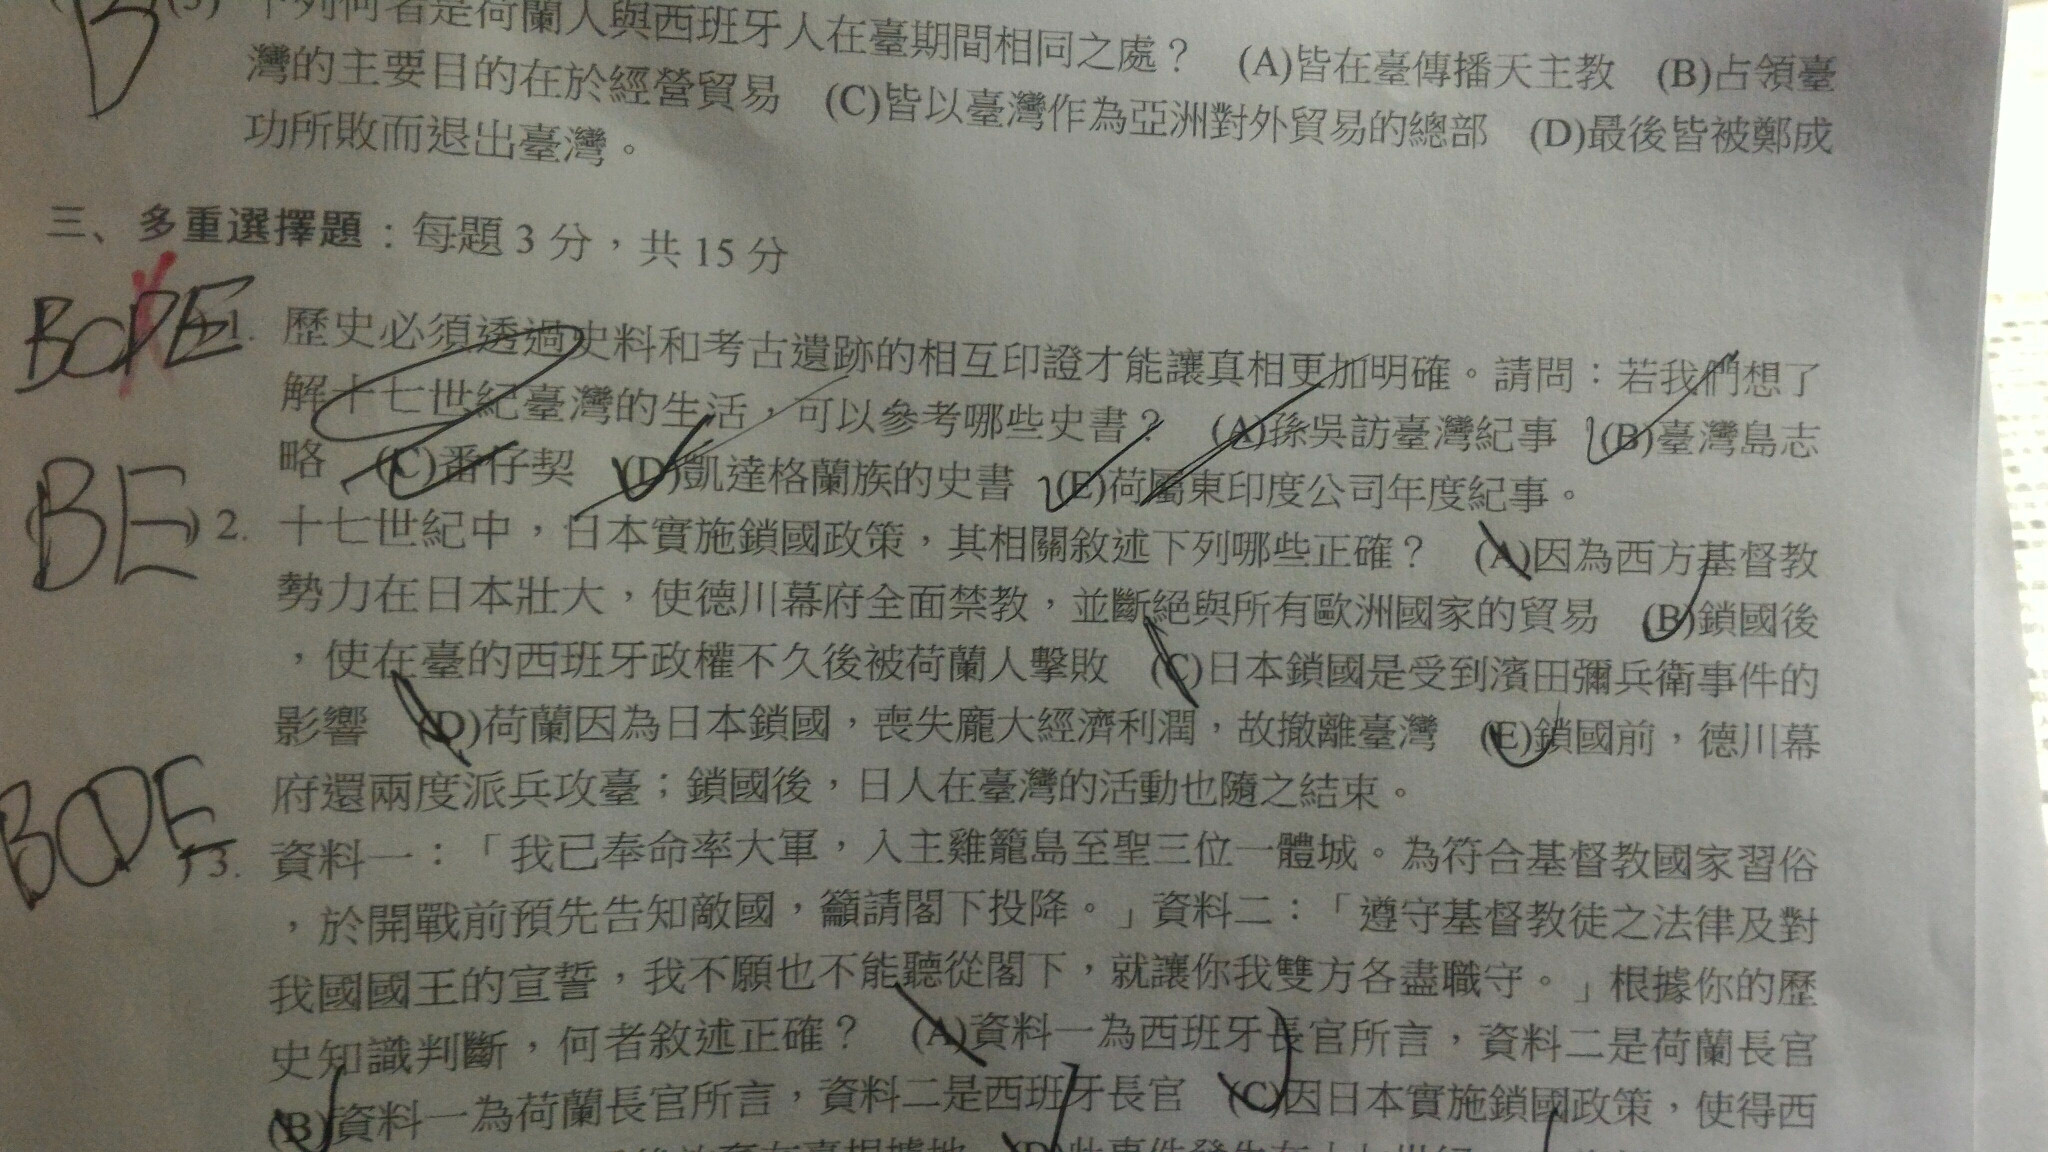 下列何者是荷蘭人與西班牙人在臺期間相同之處？ (A)皆在臺傳播天主教 (B)占領臺
灣的主要目的在於經營貿易 (C)皆以臺灣作為亞洲對外貿易的總部 (D)最後皆被鄭成
功所敗而退出臺灣。
三、多重選擇題：每題3分，共15分
BCDE 1. 歷史必須透過史料和考古遺跡的相互印證才能讓真相更加明確。請問：若我們想了
解十七世紀臺灣的生活，可以參考哪些史書？ (A)孫吳訪臺灣紀事 (B)臺灣島志
略 (C)番仔契 (D)凱達格蘭族的史書 (E)荷屬東印度公司年度紀事。
(BE) 2. 十七世紀中，日本實施鎖國政策，其相關敘述下列哪些正確？ (A)因為西方基督教
勢力在日本壯大，使德川幕府全面禁教，並斷絕與所有歐洲國家的貿易 (B)鎖國後
，使在臺的西班牙政權不久後被荷蘭人擊敗 (C)日本鎖國是受到濱田彌兵衛事件的
影響 (D)荷蘭因為日本鎖國，喪失龐大經濟利潤，故撤離臺灣 (E)鎖國前，德川幕
府還兩度派兵攻臺；鎖國後，日人在臺灣的活動也隨之結束。
BCDE )3. 資料一：「我已奉命率大軍，入主雞籠島至聖三位一體城。為符合基督教國家習俗
，於開戰前預先告知敵國，籲請閣下投降。」資料二：「遵守基督教徒之法律及對
我國國王的宣誓，我不願也不能聽從閣下，就讓你我雙方各盡職守。」根據你的歷
史知識判斷，何者敘述正確？ (A)資料一為西班牙長官所言，資料二是荷蘭長官
(B)資料一為荷蘭長官所言，資料二是西班牙長官 (C)因日本實施鎖國政策，使得西